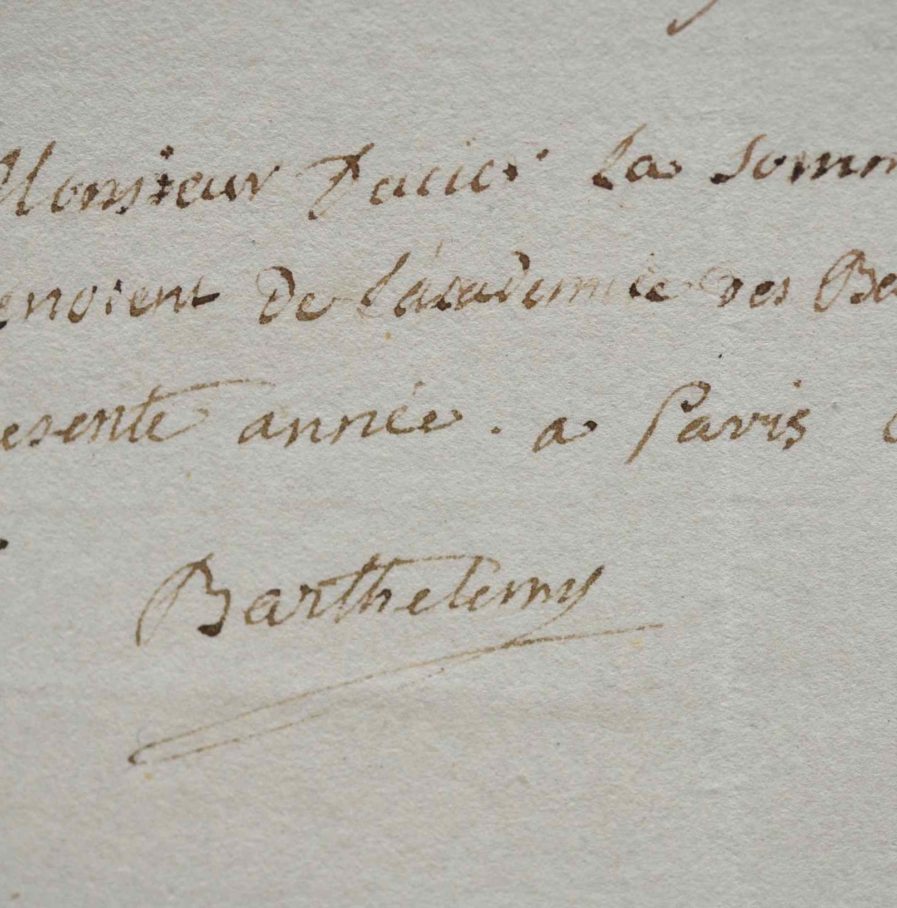 Monsieur Dacier la somm
enoient de l'academie des Be
esente année. a Paris
Barthelemy